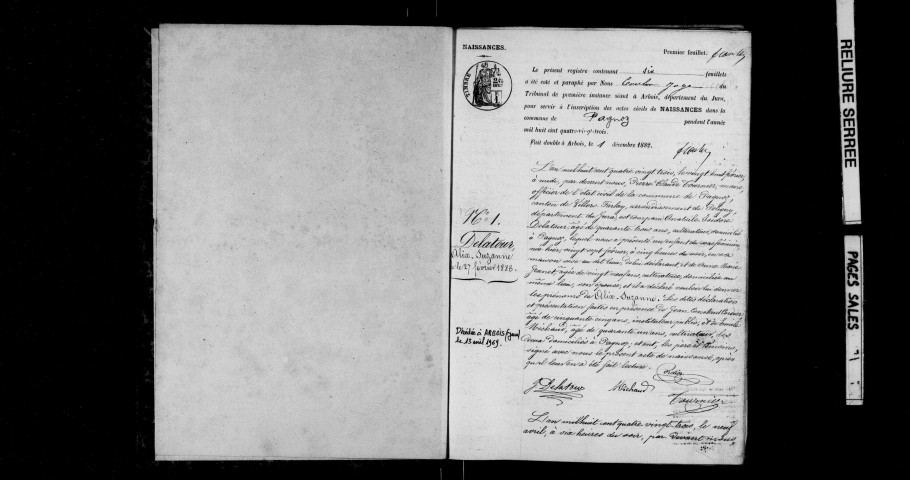 NAISSANCES.
Premier feuillet.
TIMBRE
Le présent registre contenant six feuillets
a été coté et paraphé par Nous Juge du
Tribunal de première instance séant à Arbois, département du Jura,
pour servir à l'inscription des actes civils de NAISSANCES dans la
commune de Pagnoz pendant l'année
mil huit cent quatre-vingt-trois.
Fait double à Arbois, le 1 décembre 1882.
N° 1.
Delatour,
Alix, Suzanne
le 27 février 1883.
Décédée à ARBOIS (Jura)
le 13 avril 1969.
L'an mil huit cent quatre vingt trois, le vingt huit février,
à midi, par devant nous, Pierre Claude Tournier, maire,
officier de l'état civil de la commune de Pagnoz,
canton de Villers Farlay, arrondissement de Poligny,
département du Jura, est comparu Isidore
Delatour, âgé de quarante trois ans, cultivateur, domicilié
à Pagnoz, lequel nous a présenté un enfant du sexe féminin
née hier, vingt sept février, à cinq heures du soir, en sa
maison sise au dit lieu, de lui déclarant, et de Marie
Jeanet, âgée de vingt ans, cultivatrice, domiciliée au
même lieu, son épouse, et il a déclaré vouloir lui donner
les prénoms de Alix, Suzanne. Les dites déclaration
et présentation faites en présence de Jean
âgé de cinquante cinq ans, instituteur public, et de
Michaud, âgé de quarante un ans, cultivateur, les
deux domiciliés à Pagnoz; et ont, les père et témoins,
signé avec nous le présent acte de naissance, après
qu'il leur en a été fait lecture.
J Delatour Michaud
Tournier
L'an mil huit cent quatre vingt trois, le neuf
avril, à six heures du soir, par devant nous
RELIURE SERREE
PAGES SALES